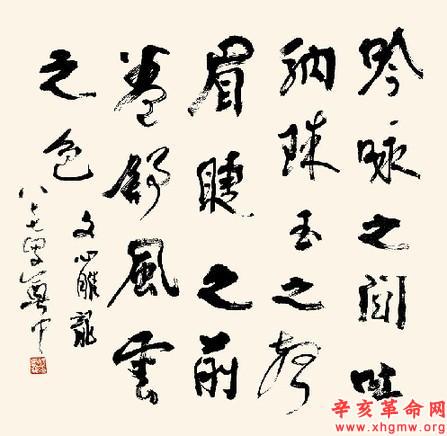 吟咏之間吐
納珠玉之声
眉睫之前
卷舒風雲
之色
文心雕龍
八十七叟
辛亥革命网
www.xhgmw.org